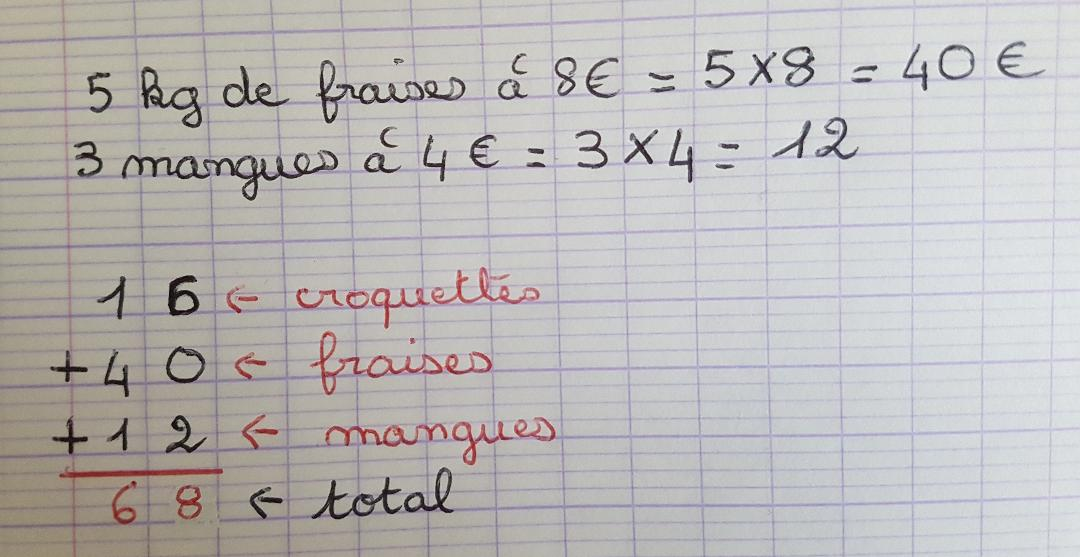 5 kg de fraises á 8€ = 5x8 = 40 €
3 mangues á 4 € = 3 x 4 = 12
16 ← croquettes
+40 ← fraises
+12 ← mangues
68 ← total